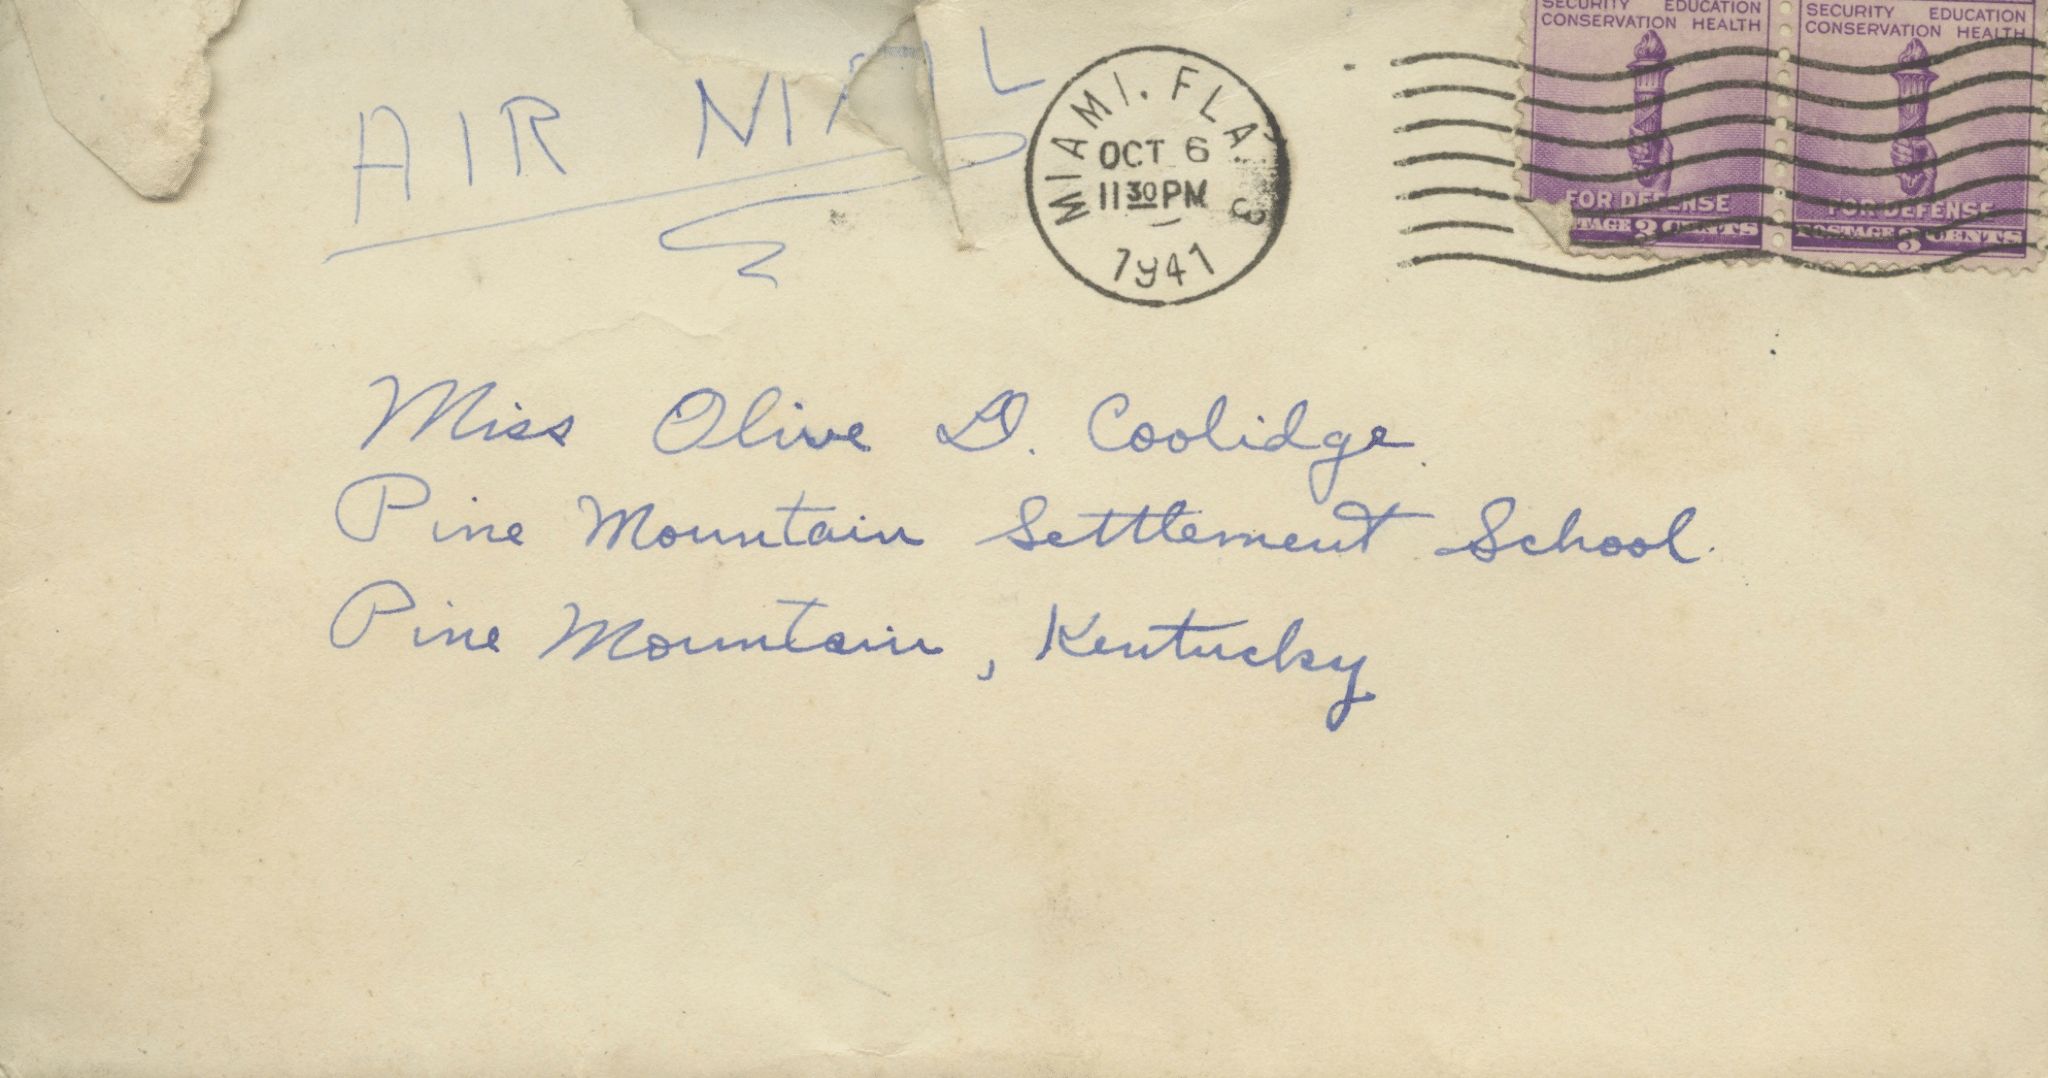 AIR MAIL
MIAMI. FLA. 3
OCT 6
11 30 PM
1941
SECURITY EDUCATION
CONSERVATION HEALTH
FOR DEFENSE
TAGE 3 CENTS
SECURITY EDUCATION
CONSERVATION HEALTH
FOR DEFENSE
POSTAGE 3 CENTS
Miss Olive D. Coolidge.
Pine Mountain Settlement School.
Pine Mountain, Kentucky